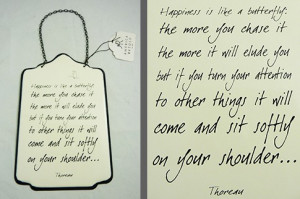 Happiness is like a butterfly:
the more you chase it
the more it will elude you
but if you turn your attention
to other things it will
come and sit softly
on your shoulder...
Thoreau
Happiness is like a butterfly:
the more you chase it
the more it will elude you
but if you turn your attention
to other things it will
come and sit softly
on your shoulder...
Thoreau